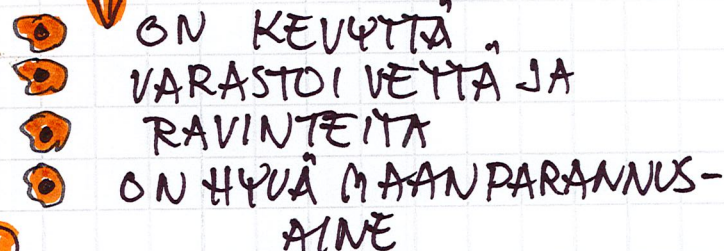 ON KEVYTTÄ
VARASTOI VETTÄ JA
RAVINTEITA
ON HYVÄ MAANPARANNUS-
AINE